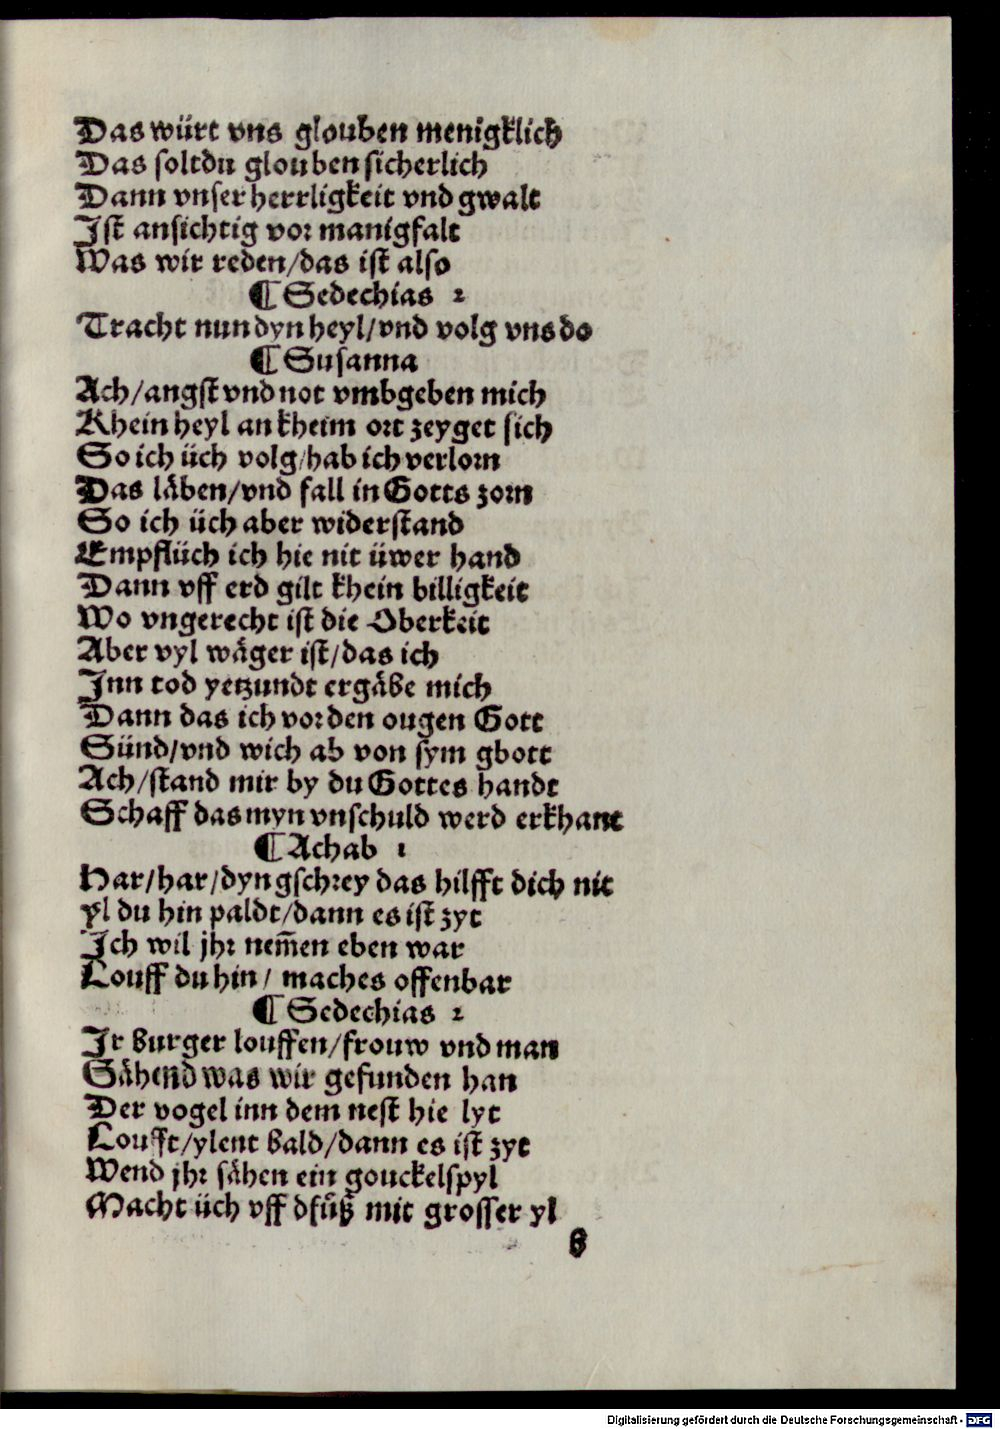 Das würt vns glouben menigklich
Das soltdu glouben sicherlich
Dann vnser herrligkeit vnd gwalt
Ist ansichtig vor manigfalt
Was wir reden/das ist also
¶ Sedechias 2
Tracht nun dyn heyl/vnd volg vns do
¶ Susanna
Ach/angst vnd not vmbgeben mich
Khein heyl an kheim ort zeyget sich
So ich üch volg/hab ich verlorn
Das läben/vnd fall in Gotts zorn
So ich üch aber widerstand
Empflüch ich hie nit üwer hand
Dann vff erd gilt khein billigkeit
Wo vngerecht ist die Oberkeit
Aber vyl wäger ist/das ich
Inn tod yetzundt ergäbe mich
Dann das ich vor den ougen Gott
Sünd/vnd wich ab von sym gbott
Ach/stand mir by du Gottes handt
Schaff das myn vnschuld werd erkhant
¶ Achab 1
Har/har/dyn gschrey das hilfft dich nit
Yl du hin paldt/dann es ist zyt
Ich wil jhr nem̄en eben war
Louff du hin/ maches offenbar
¶ Sedechias 2
Ir burger louffen/frouw vnd man
Sähend was wir gefunden han
Der vogel inn dem nest hie lyt
Loufft/ylent bald/dann es ist zyt
Wend jhr sähen ein gouckelspyl
Macht üch vff dfüß mit grosser yl
B
Digitalisierung gefördert durch die Deutsche Forschungsgemeinschaft - DFG